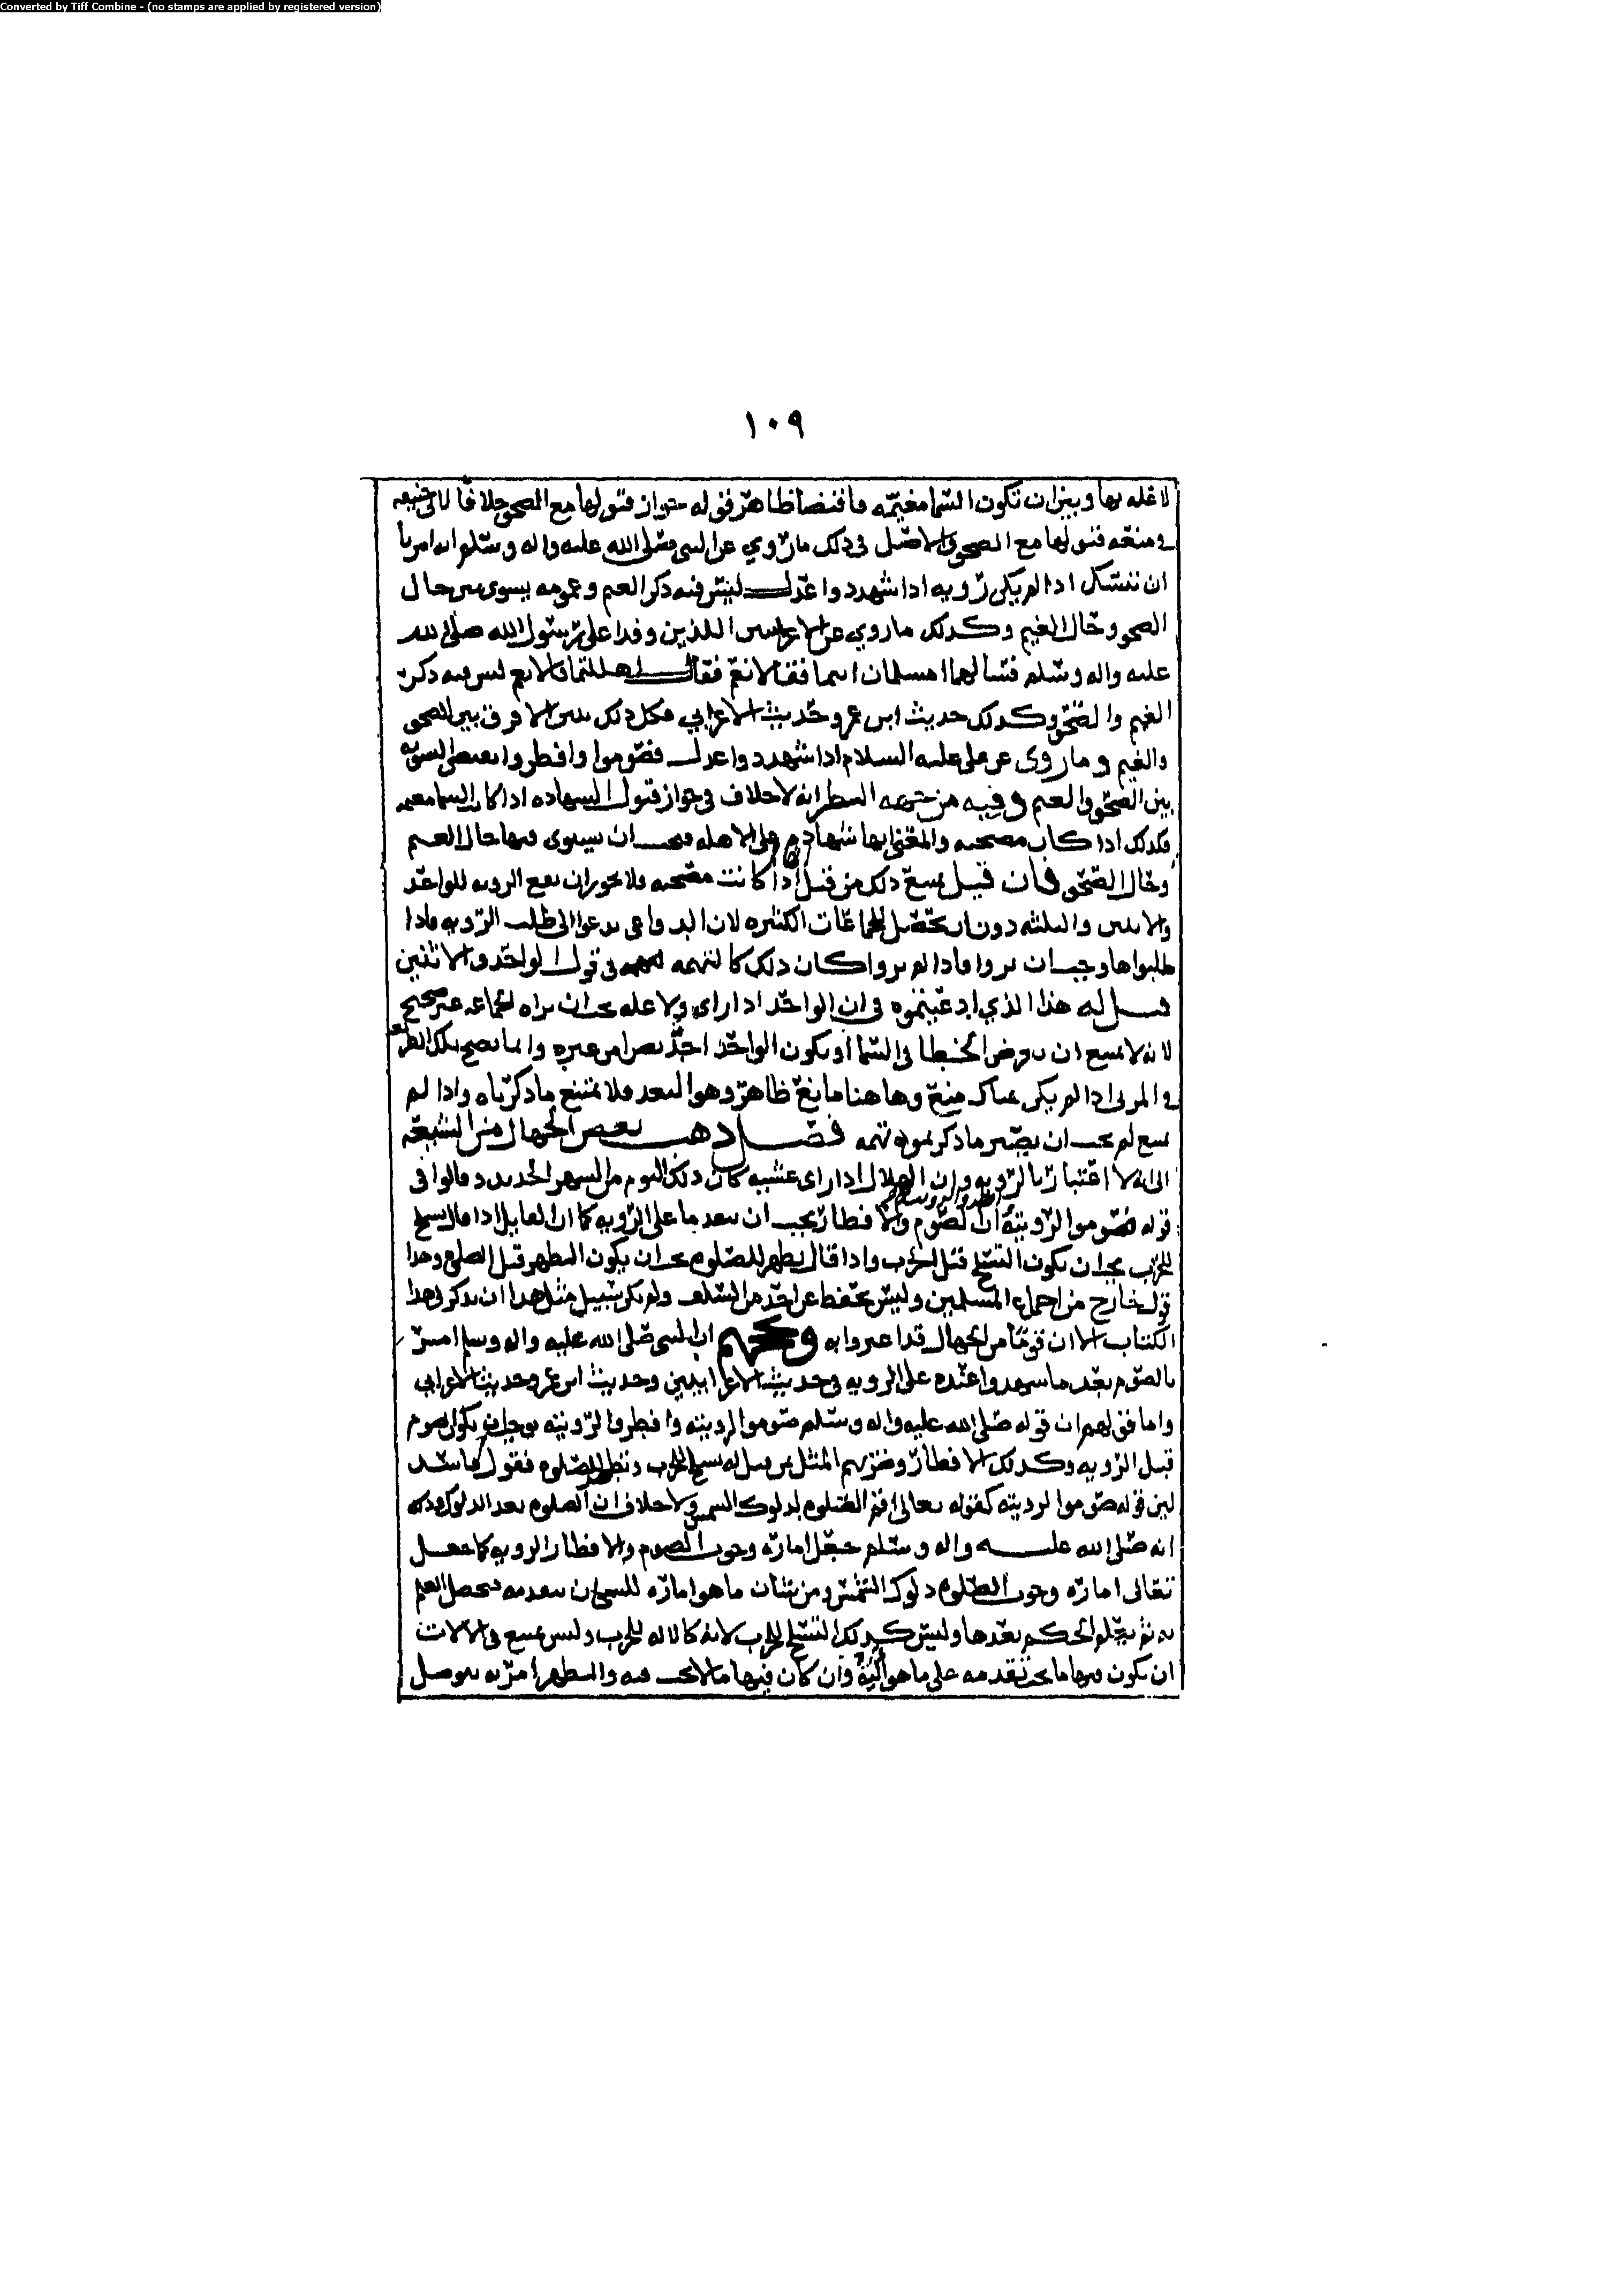 Converted by Tiff Combine - (no stamps are applied by registered version)
١٠٩
لا عله بها وبين ان تكون السما مغيمه فاقتضا ظاهر قوله جواز قبولها مع الصحو خلافا لابي حنيفه
في منعه قبولها مع الصحو والاصل في ذلك ما روي عن النبي صلى الله عليه واله وسلم انه امرنا
ان ننسك اذا لم يكن رؤيه اذا شهد ذوا عدل ليس فيه ذكر الغيم وعمومه يسوي بين حال
الصحو وحال الغيم وكذلك ما روي عن الاعرابيين اللذين وفدا على رسول الله صلى الله
عليه واله وسلم فسالهما امسلمان انتما فقالا نعم فقال اهللتما قالا نعم ليس فيه ذكر
الغيم والصحو وكذلك حديث ابن عمر وحديث الاعرابي فكل ذلك يبين الا فرق بين الصحو
والغيم وما روى عن علي عليه السلام اذا شهد ذوا عدل فصوموا وافطروا يقتضي التسويه
بين الصحو والغيم وفيه من جهه النظر انه لا خلاف في جواز قبول الشهاده اذا كانت السما مغيمه
فكذلك اذا كانت مصحيه والمعنى انها شهادة على الاهله فيجب ان يستوى فيها حال الغيم
وحال الصحو فان قيل يمنع ذلك من قبل اذا كانت مصحيه ولا يجوز ان تقع الرويه للواحد
والاثنين والثلثه دون ان تحصل للجماعات الكثيره لان الدواعي تدعوا الى طلب الرويه فاذا
طلبوها وجب ان يروا فاذا لم يروا كان ذلك كالتهمه في قول الواحد والاثنين
قيل له هذا الذي ادعيتموه في ان الواحد اذا راى ولا عله يجب ان يراه الجماعه غير صحيح
لانه لا يمتنع ان يعرض الخطا في السما او يكون الواحد احد بصرا من غيره وانما يصح تلك الطريقه
في المرئى اذا لم يكن هناك منع وهاهنا مانع ظاهر وهو البعد فلا يمتنع ما ذكرناه واذا لم
يمنع لم يجب ان يصير ما ذكرتموه تهمه فصل ذهب بعض الجهال من الشيعه
الى انه لا اعتبار بالرؤيه وان الهلال اذا راى عشيه كان ذلك اليوم من الشهر الجديد وقالوا في
قوله صوموا لرؤيته ان الصوم والافطار يجب ان يتقدما على الرؤيه كما ان القايل اذا قال تسلح
للحرب يجب ان يكون التسلح قبل الحرب واذا قال تطهر للصلوه يجب ان يكون التطهر قبل الصلوه وهذا
قول خارج من اجماع المسلمين وليس يحفظ عن احد من السلف ولم يكن سبيل مثل هذا ان يذكر في هذا
الكتاب الا ان قوما من الجهال قد اغتروا به ان النبي صلى الله عليه واله وسلم امر
بالصوم بعد ما شهدوا عنده على الرويه في حديث الاعرابيين وحديث ابن عمر وحديث الاعرابي
واما قولهم ان قوله صلى الله عليه واله وسلم صوموا لرؤيته وافطروا لرؤيته يوجب ان يكون الصوم
قبل الرؤيه وكذلك الافطار وضربهم المثل بمن قيل له تسلح للحرب وتطهر للصلوه فقول فاسد
لان قوله صوموا لرؤيته كقوله تعالى اقم الصلوه لدلوك الشمس ولا خلاف ان الصلوه بعد الدلوك وذلك
انه صلى الله عليه واله وسلم جعل اماره وجوب الصوم والافطار الرويه كما جعل
تعالى اماره وجوب الصلوه دلوك الشمس ومن شان ما هو اماره للشي ان يتقدمه فيحصل العلم
به ثم يتلوه الحكم بعدها وليس كذلك التسلح للحرب لانه كالاله للحرب وليس يمتنع في الالات
ان يكون فيها ما يجب تقدمه على ما هو الة وان كان فيها ما لا يجب فيه والتطهر امر به يتوصل